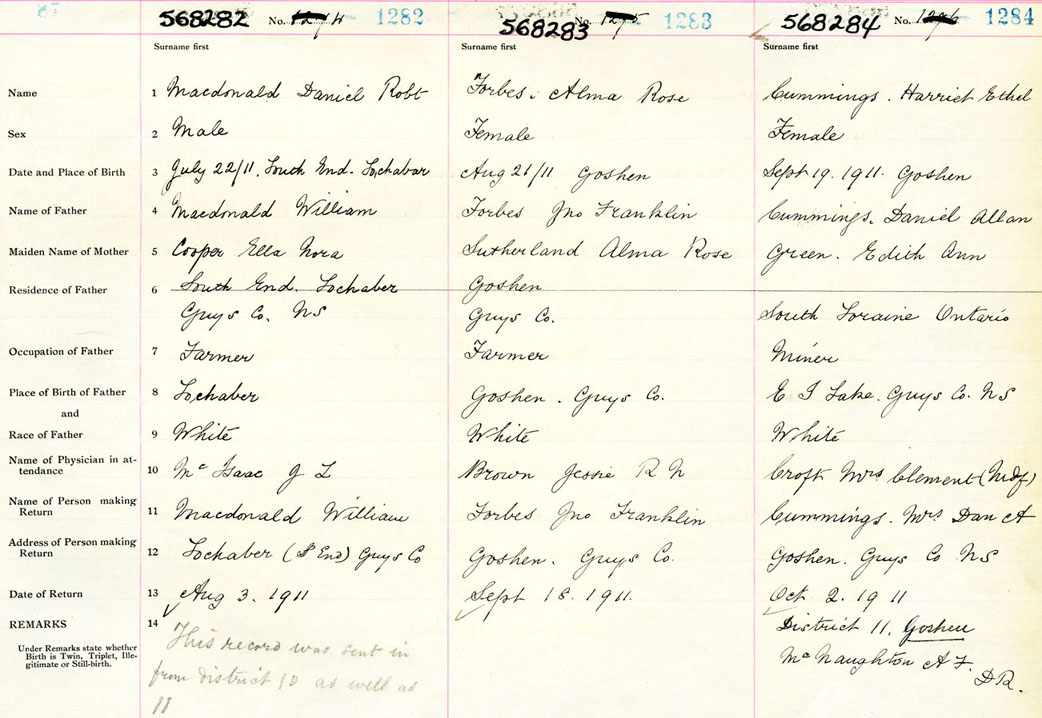 568282 No. 1282 568283 No. 1283 568284 No. 1284
Surname first Surname first Surname first
Name 1 Macdonald Daniel Robt Forbes. Alma Rose Cummings. Harriet Ethel
Sex 2 Male Female Female
Date and Place of Birth 3 July 22/11. South End. Lochabar Aug 21/11 Goshen Sept 19. 1911. Goshen
Name of Father 4 Macdonald William Forbes Jno Franklin Cummings. Daniel Allan
Maiden Name of Mother 5 Cooper Ella Nora Sutherland Alma Rose Green. Edith Ann
Residence of Father 6 South End. Lochaber Goshen
Guys Co. NS Guys Co. South Loraine Ontario
Occupation of Father 7 Farmer Farmer Miner
Place of Birth of Father 8 Lochaber Goshen. Guys Co. E I Lake. Guys Co. NS
and
Race of Father 9 White White White
Name of Physician in at-
tendance 10 Mc Isaac J L Brown Jessie R N Croft Mrs Clement (Mdf)
Name of Person making
Return 11 Macdonald William Forbes Jno Franklin Cummings. Mrs Dan A
Address of Person making
Return 12 Lochaber (S End) Guys Co Goshen. Guys Co. Goshen. Guys Co NS
Date of Return 13 Aug 3. 1911 Sept 18. 1911. Oct 2. 1911
REMARKS 14 District 11. Goshen
Under Remarks state whether
Birth is Twin, Triplet, Ille-
gitimate or Still-birth.
This record was sent in
from District 10 as well as
11
Mc Naughton A F.
DR.